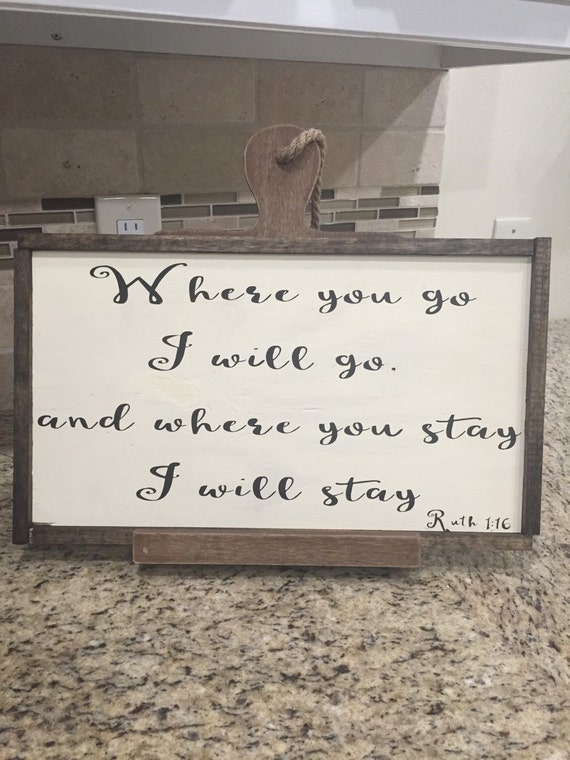 Where you go
I will go.
and where you stay
I will stay
Ruth 1:16